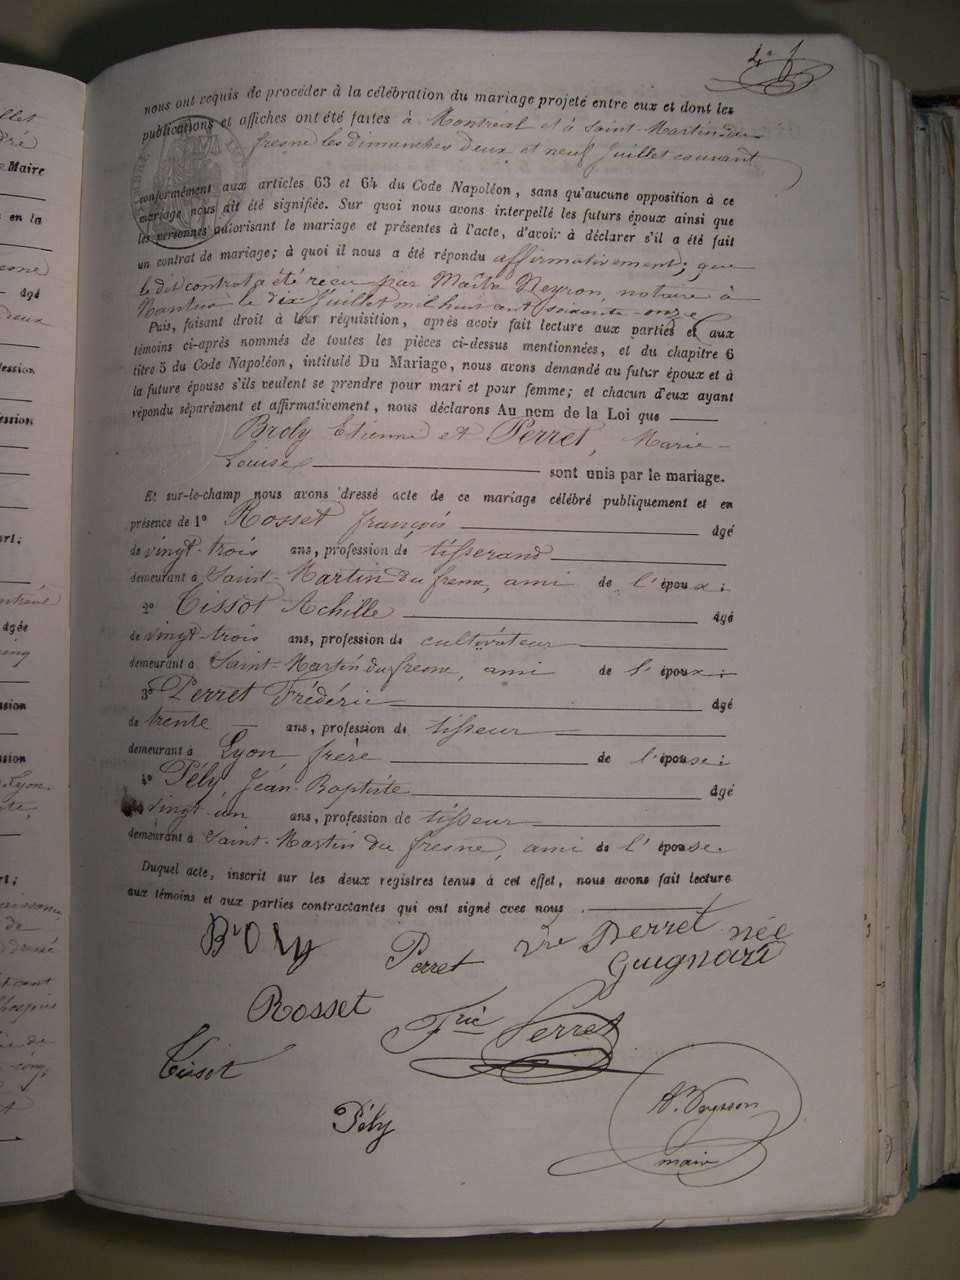 4e
nous ont requis de procéder à la célébration du mariage projeté entre eux et dont les
publications et affiches ont été faites à Montréal et à Saint-Martin du
fresne les dimanches deux et neuf Juillet courant
conformément aux articles 63 et 64 du Code Napoléon, sans qu'aucune opposition à ce
mariage nous ait été signifiée. Sur quoi nous avons interpellé les futurs époux ainsi que
les personnes autorisant le mariage et présentes à l'acte, d'avoir à déclarer s'il a été fait
un contrat de mariage; à quoi il nous a été répondu affirmativement; que
le dit contrat a été reçu par Maître Neyron, notaire à
Nantua le dix Juillet mil huit cent soixante-onze
Puis, faisant droit à leur réquisition, après avoir fait lecture aux parties et aux
témoins ci-après nommés de toutes les pièces ci-dessus mentionnées, et du chapitre 6
titre 5 du Code Napoléon, intitulé Du Mariage, nous avons demandé au futur époux et à
la future épouse s'ils veulent se prendre pour mari et pour femme; et chacun d'eux ayant
répondu séparément et affirmativement, nous déclarons Au nom de la Loi que
Broly Etienne et Perret, Marie-
Louise sont unis par le mariage.
Et sur-le-champ nous avons dressé acte de ce mariage célébré publiquement et en
présence de 1º Rosset françois âgé
de vingt-trois ans, profession de tisserand
demeurant à Saint-Martin du fresne, ami de l'époux;
2º Tissot Achille âgé
de vingt-trois ans, profession de cultivateur
demeurant à Saint-Martin du fresne, ami de l'époux;
3º Perret Frédéric âgé
de trente ans, profession de tisseur
demeurant à Lyon frère de l'épouse;
4º Pély, Jean-Baptiste âgé
de vingt-un ans, profession de tisseur
demeurant à Saint-Martin du fresne, ami de l'épouse.
Duquel acte, inscrit sur les deux registres tenus à cet effet, nous avons fait lecture
aux témoins et aux parties contractantes qui ont signé avec nous.
Broly Perret Vve Perret née
Guignard
Rosset Fric Perret
Tissot
Pély
maire